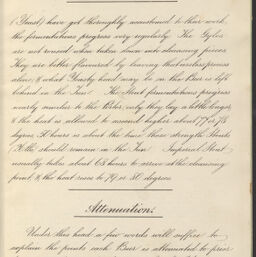 (Yeast) have got thoroughly accustomed to their work,
the fermentations progress very regularly. The Gyles
are not roused when taken down into cleansing pieces.
They are better flavoured by leaving that process
alone, & what Yeasty head may be in the Beer is left
behind in the Tun. The Stout fermentations progress
nearly similar to the Bitter, only they lay a little longer,
& the heat is allowed to ascend higher about 77 or 78
degrees. 50 hours is about the time these strength Stouts
should remain in the Tun. Imperial Stout
usually takes about 63 hours to arrive at the cleansing
point, & the heat rises to 79 or 80 degrees.
Attenuation.
Under this head a few words will suffice to
explain the points each Beer is attenuated to prior